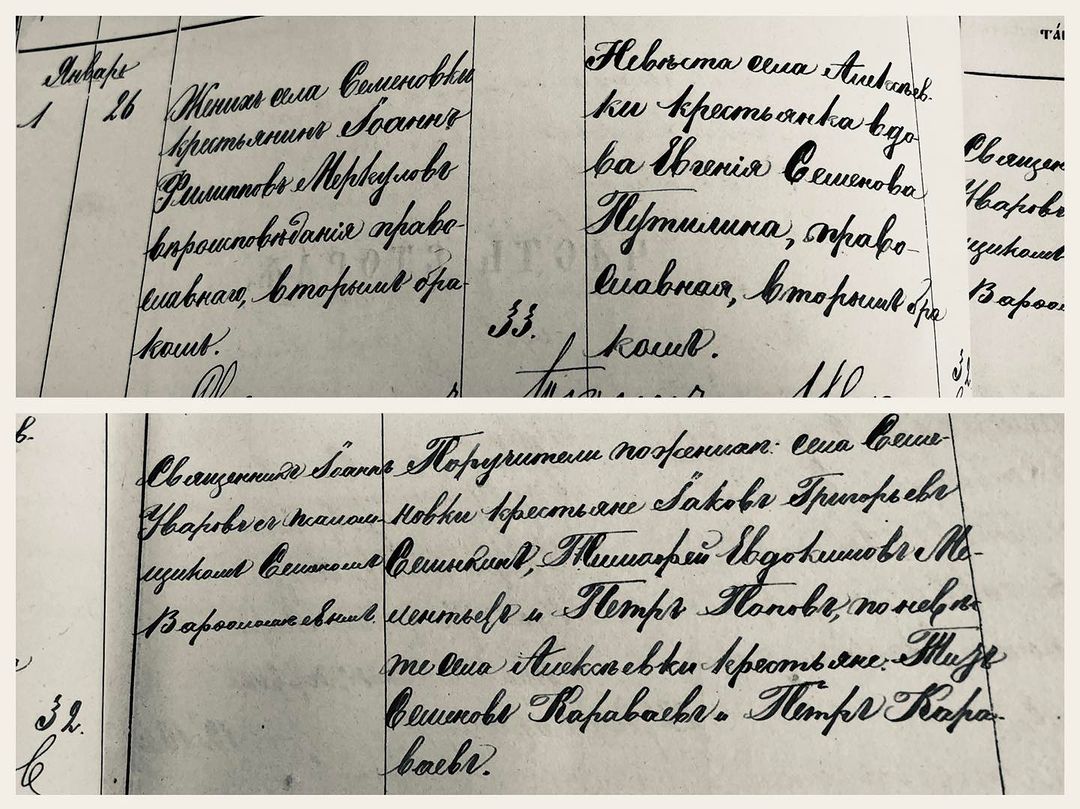 Январь
1 26
Женихъ села Семеновки
крестьянинъ Іоаннъ
Филипповъ Меркуловъ
вѣроисповѣданія право-
славнаго, вторымъ бра-
комъ.
33.
Невѣста села Алексѣев-
ки крестьянка вдо-
ва Евгенія Семенова
Путилина, право-
славная, вторымъ бра
комъ.
Священ
Уваровъ
щикомъ
Варѳол
32
в.
Священникъ Іоаннъ
Уваровъ съ псалом-
щикомъ Семеномъ
Варѳоломеевымъ.
Поручители по жениху: села Семе-
новки крестьяне Іаковъ Григорьевъ
Семыкинъ, Тимоѳей Евдокимовъ Ме-
лентьевъ и Петръ Поповъ, по невѣс-
тѣ села Алексѣевки крестьяне:
Семеновъ Караваевъ и Петръ Кара-
ваевъ.
32.